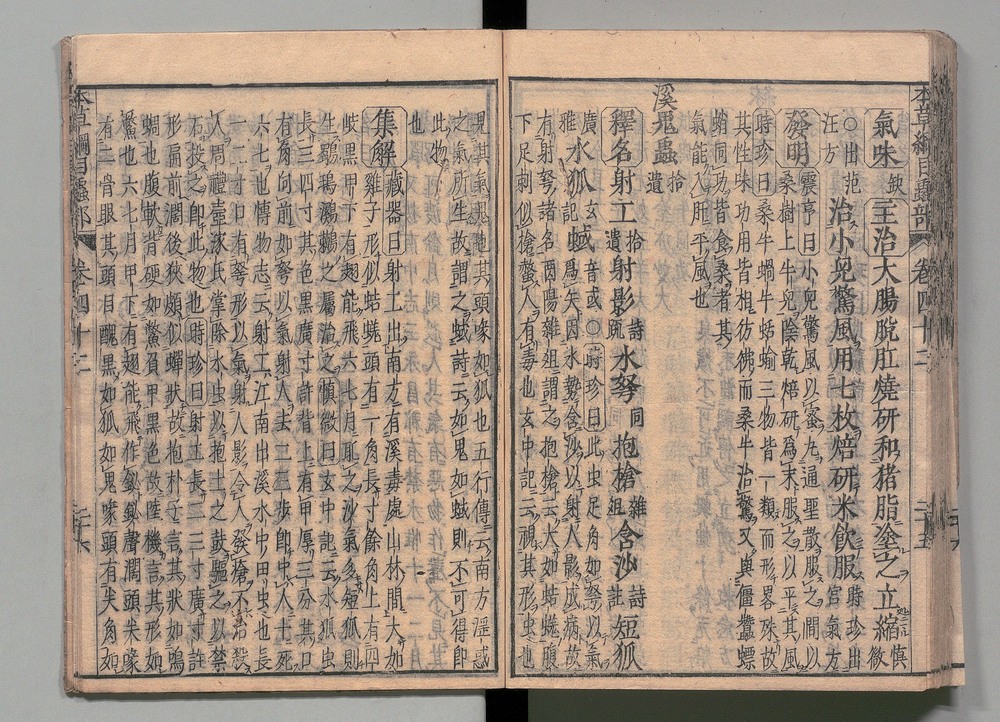 氣味缺主治大腸脫肛燒研和猪脂塗之立縮愼微
○出范汪方治小兒驚風用七枚焙研米飲服時珍出宮氣方
發明震亨曰小兒驚風以蜜丸通聖散服之間以
桑樹上牛兒陰乾焙研爲末服之以平其風
時珍曰桑牛蝸牛蛞蝓三物皆一類而形畧殊故
其性味功用皆相彷彿而桑牛治驚又與僵蠶螵
蛸同功皆食桑者其
氣能入肝平風也
溪鬼蟲拾遺
釋名射工拾遺射影詩疏水弩同抱槍雜俎含沙詩註短狐
廣雅水狐玄中記蜮音或○時珍曰此虫足角如弩以氣
爲矢因水勢含沙以射人影成病故
有射弩諸名酉陽雜俎謂之抱槍云大如蛣蜣腹
下足刺似槍螫人有毒也玄中記云視其形虫也
見其氣鬼也其頭喙如狐也五行傳云南方淫惑
之氣所生故謂之蜮詩云如鬼如蜮則不可得即
此物也
集解藏器曰射工出南方有溪毒處山林間大如
雞子形似蛣蜣頭有一角長寸餘角上有四
岐黑甲下有翅能飛六七月取之沙氣多短狐則
生鸀鳿鸂鶒之屬治之愼微曰玄中記云水狐虫
長三四寸其色黑廣寸許背上有甲厚三分其口
有角向前如弩以氣射人去二三步即中人十死
六七也博物志云射工江南出溪水中甲虫也長
一二寸口有弩形以氣射人影令人發瘡不治殺
人周禮壺涿氏掌除水虫以抱土之鼓驅之以禁
石投之即此物也時珍曰射工長二三寸廣寸許
形扁前濶後狹頗似蟬狀故抱朴子言其狀如鳴
蜩也腹軟背硬如鱉負甲黑色故陸機言其形如
鱉也六七月甲下有翅能飛作鉍鉍聲濶頭尖喙
有二骨眼其頭目醜黑如狐如鬼喙頭有尖角如
本草綱目蟲部
卷四十二
本草綱目蟲部
卷四十二
二十五